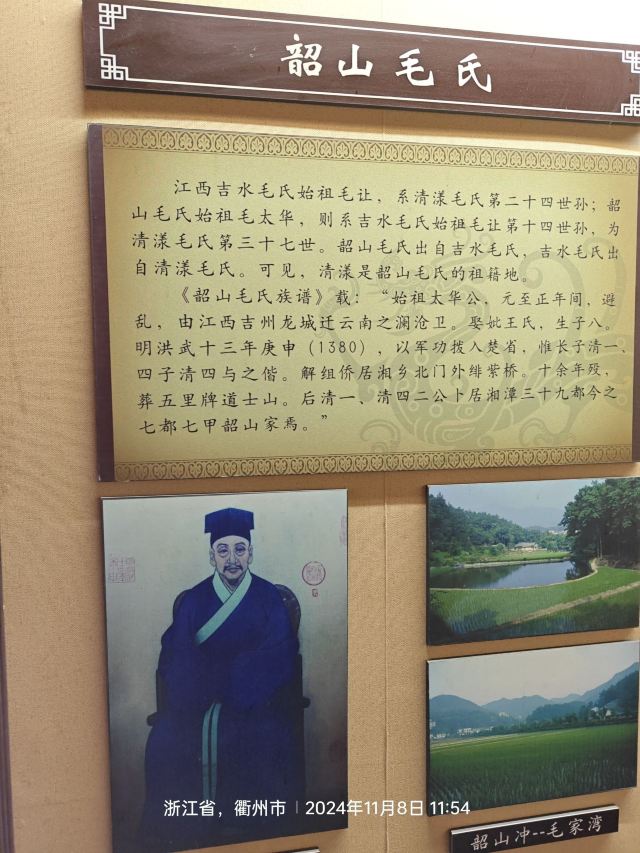 韶山毛氏
江西吉水毛氏始祖毛让，系清漾毛氏第二十四世孙；韶
山毛氏始祖毛太华，则系吉水毛氏始祖毛让第十四世孙，为
清漾毛氏第三十七世。韶山毛氏出自吉水毛氏，吉水毛氏出
自清漾毛氏。可见，清漾是韶山毛氏的祖籍地。
《韶山毛氏族谱》载：“始祖太华公，元至正年间，避
乱，由江西吉州龙城迁云南之澜沧卫。娶妣王氏，生子八。
明洪武十三年庚申（1380），以军功拨入楚省，惟长子清一、
四子清四与之偕。解组侨居湘乡北门外绯紫桥。十余年殁，
葬五里牌道士山。后清一、清四二公卜居湘潭三十九都今之
七都七甲韶山家焉。”
韶山冲--毛家湾
浙江省，衢州市 | 2024年11月8日 11:54